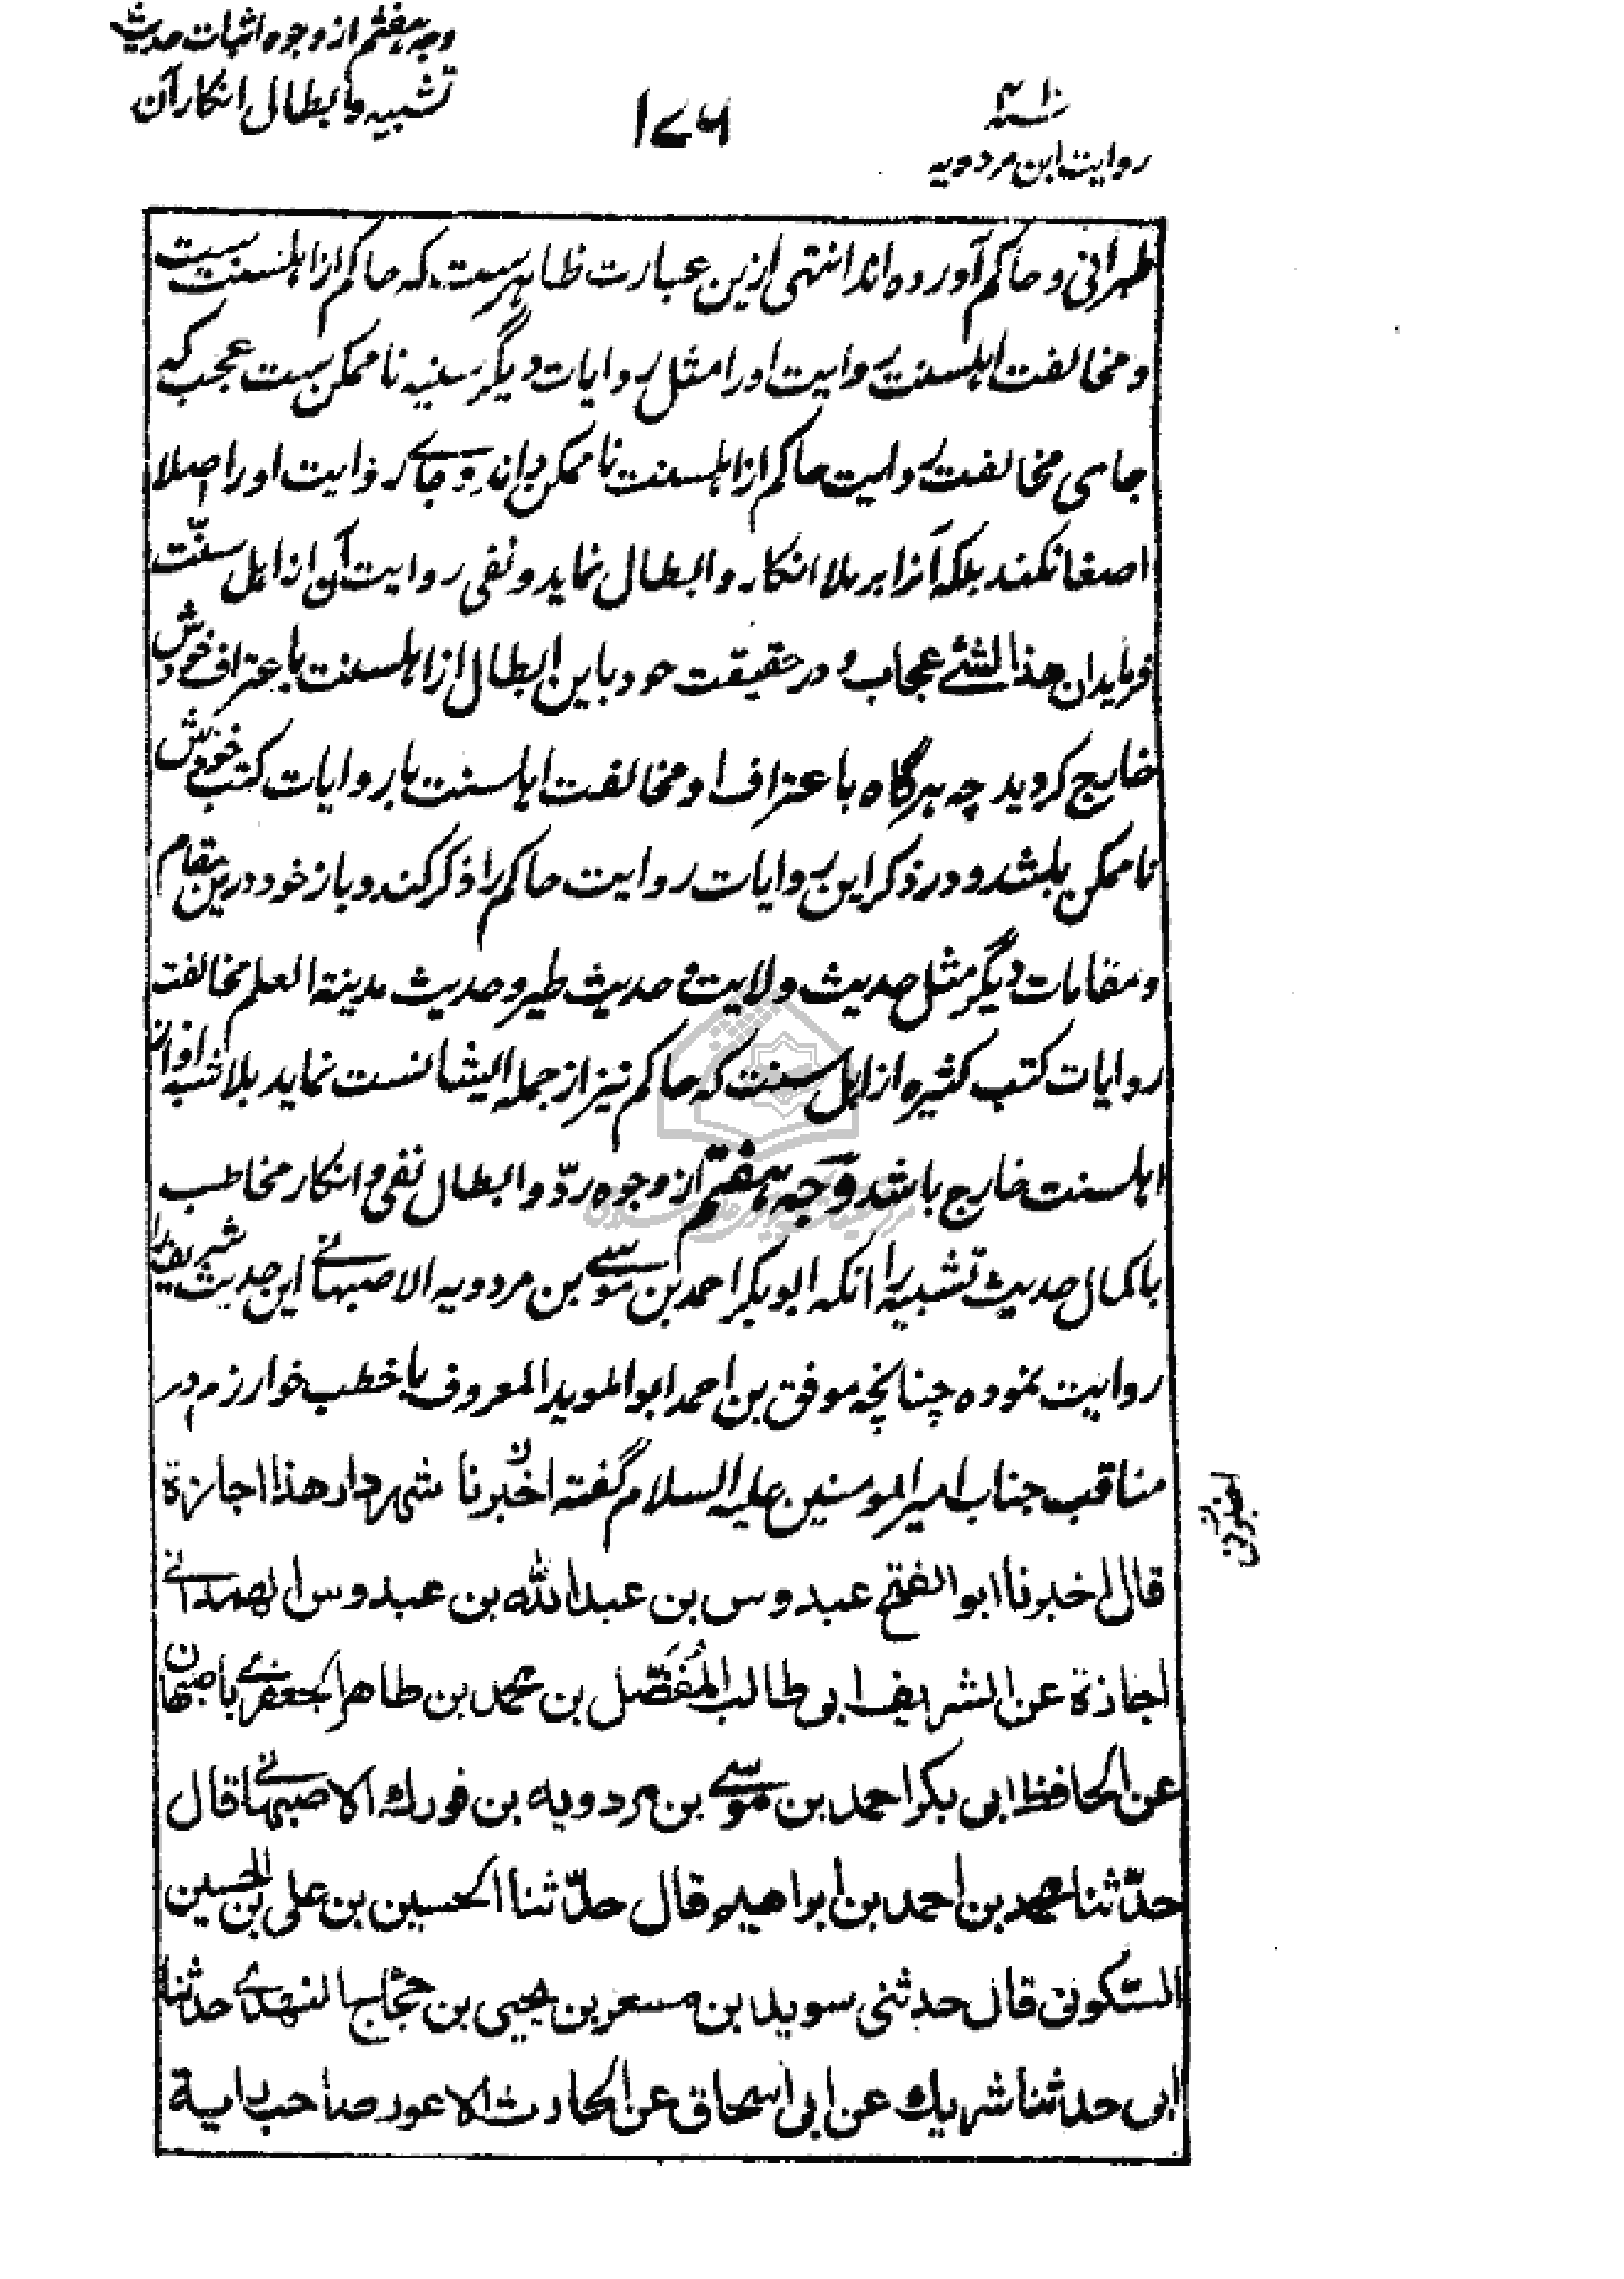 وجه هفتم از وجوه اثبات حدیث
تشبیه و ابطال انکار آن
۱۷۶
سنه ۴۱۰
روایت ابن مردویه
طبرانی و حاکم آورده اند انتهی ازین عبارت ظاهرست که حاکم از اهلسنت ست
و مخالفت اهلسنت روایت او را مثل روایات دیگر سنیه ناممکن ست عجب که
جای مخالفت روایت حاکم از اهلسنت ناممکن داند و جاے روایت او را اصلا
اصغا نکند بلکه آنرا برملا انکار و ابطال نماید و نفی روایت آن از اهل سنّت
فرماید ان هذا لشئے عجاب و در حقیقت خود باین ابطال از اهلسنت باعتراف خودش
خارج گردید چه هرگاه باعتراف او مخالفت اهلسنت با روایات کتب خودش
ناممکن باشد و در ذکر این روایات روایت حاکم را ذکر کند و باز خود درین مقام
و مقامات دیگر مثل حدیث ولایت و حدیث طیر و حدیث مدینة العلم مخالفت
روایات کتب کثیره از اهل سنت که حاکم نیز از جمله ایشانست نماید بلا شبه او از
اهلسنت خارج باشد وجه هفتم از وجوه ردّ و ابطال نفی و انکار مخاطب
باکمال حدیث تشبیه را آنکه ابوبکر احمد بن موسے بن مردویه الاصبهانے این حدیث شریف را
روایت نموده چنانچه موفق بن احمد ابو الموید المعروف باخطب خوارزم در
مناقب جناب امیر المومنین علیه السلام گفته اخبرنا شهردار هذا اجازة
اخبرنی
قال اخبرنا ابو الفتح عبدوس بن عبد الله بن عبدوس الهمدانے
اجازة عن الشریف ابی طالب المُفَضّل بن محمد بن طاهر الجعفرے باصبهان
عن الحافظ ابی بکر احمد بن موسے بن مردویه بن فورك الاصبهانے قال
حدّثنا محمد بن احمد بن ابراهیم قال حدّثنا الحسین بن علی بن الحسین
السّکونی قال حدثنی سوید بن مسعر بن یحیی بن حجّاج النهدے حدثنا
ابی حدثنا شریك عن ابی اسحاق عن الحارث الاعور صاحب رایة